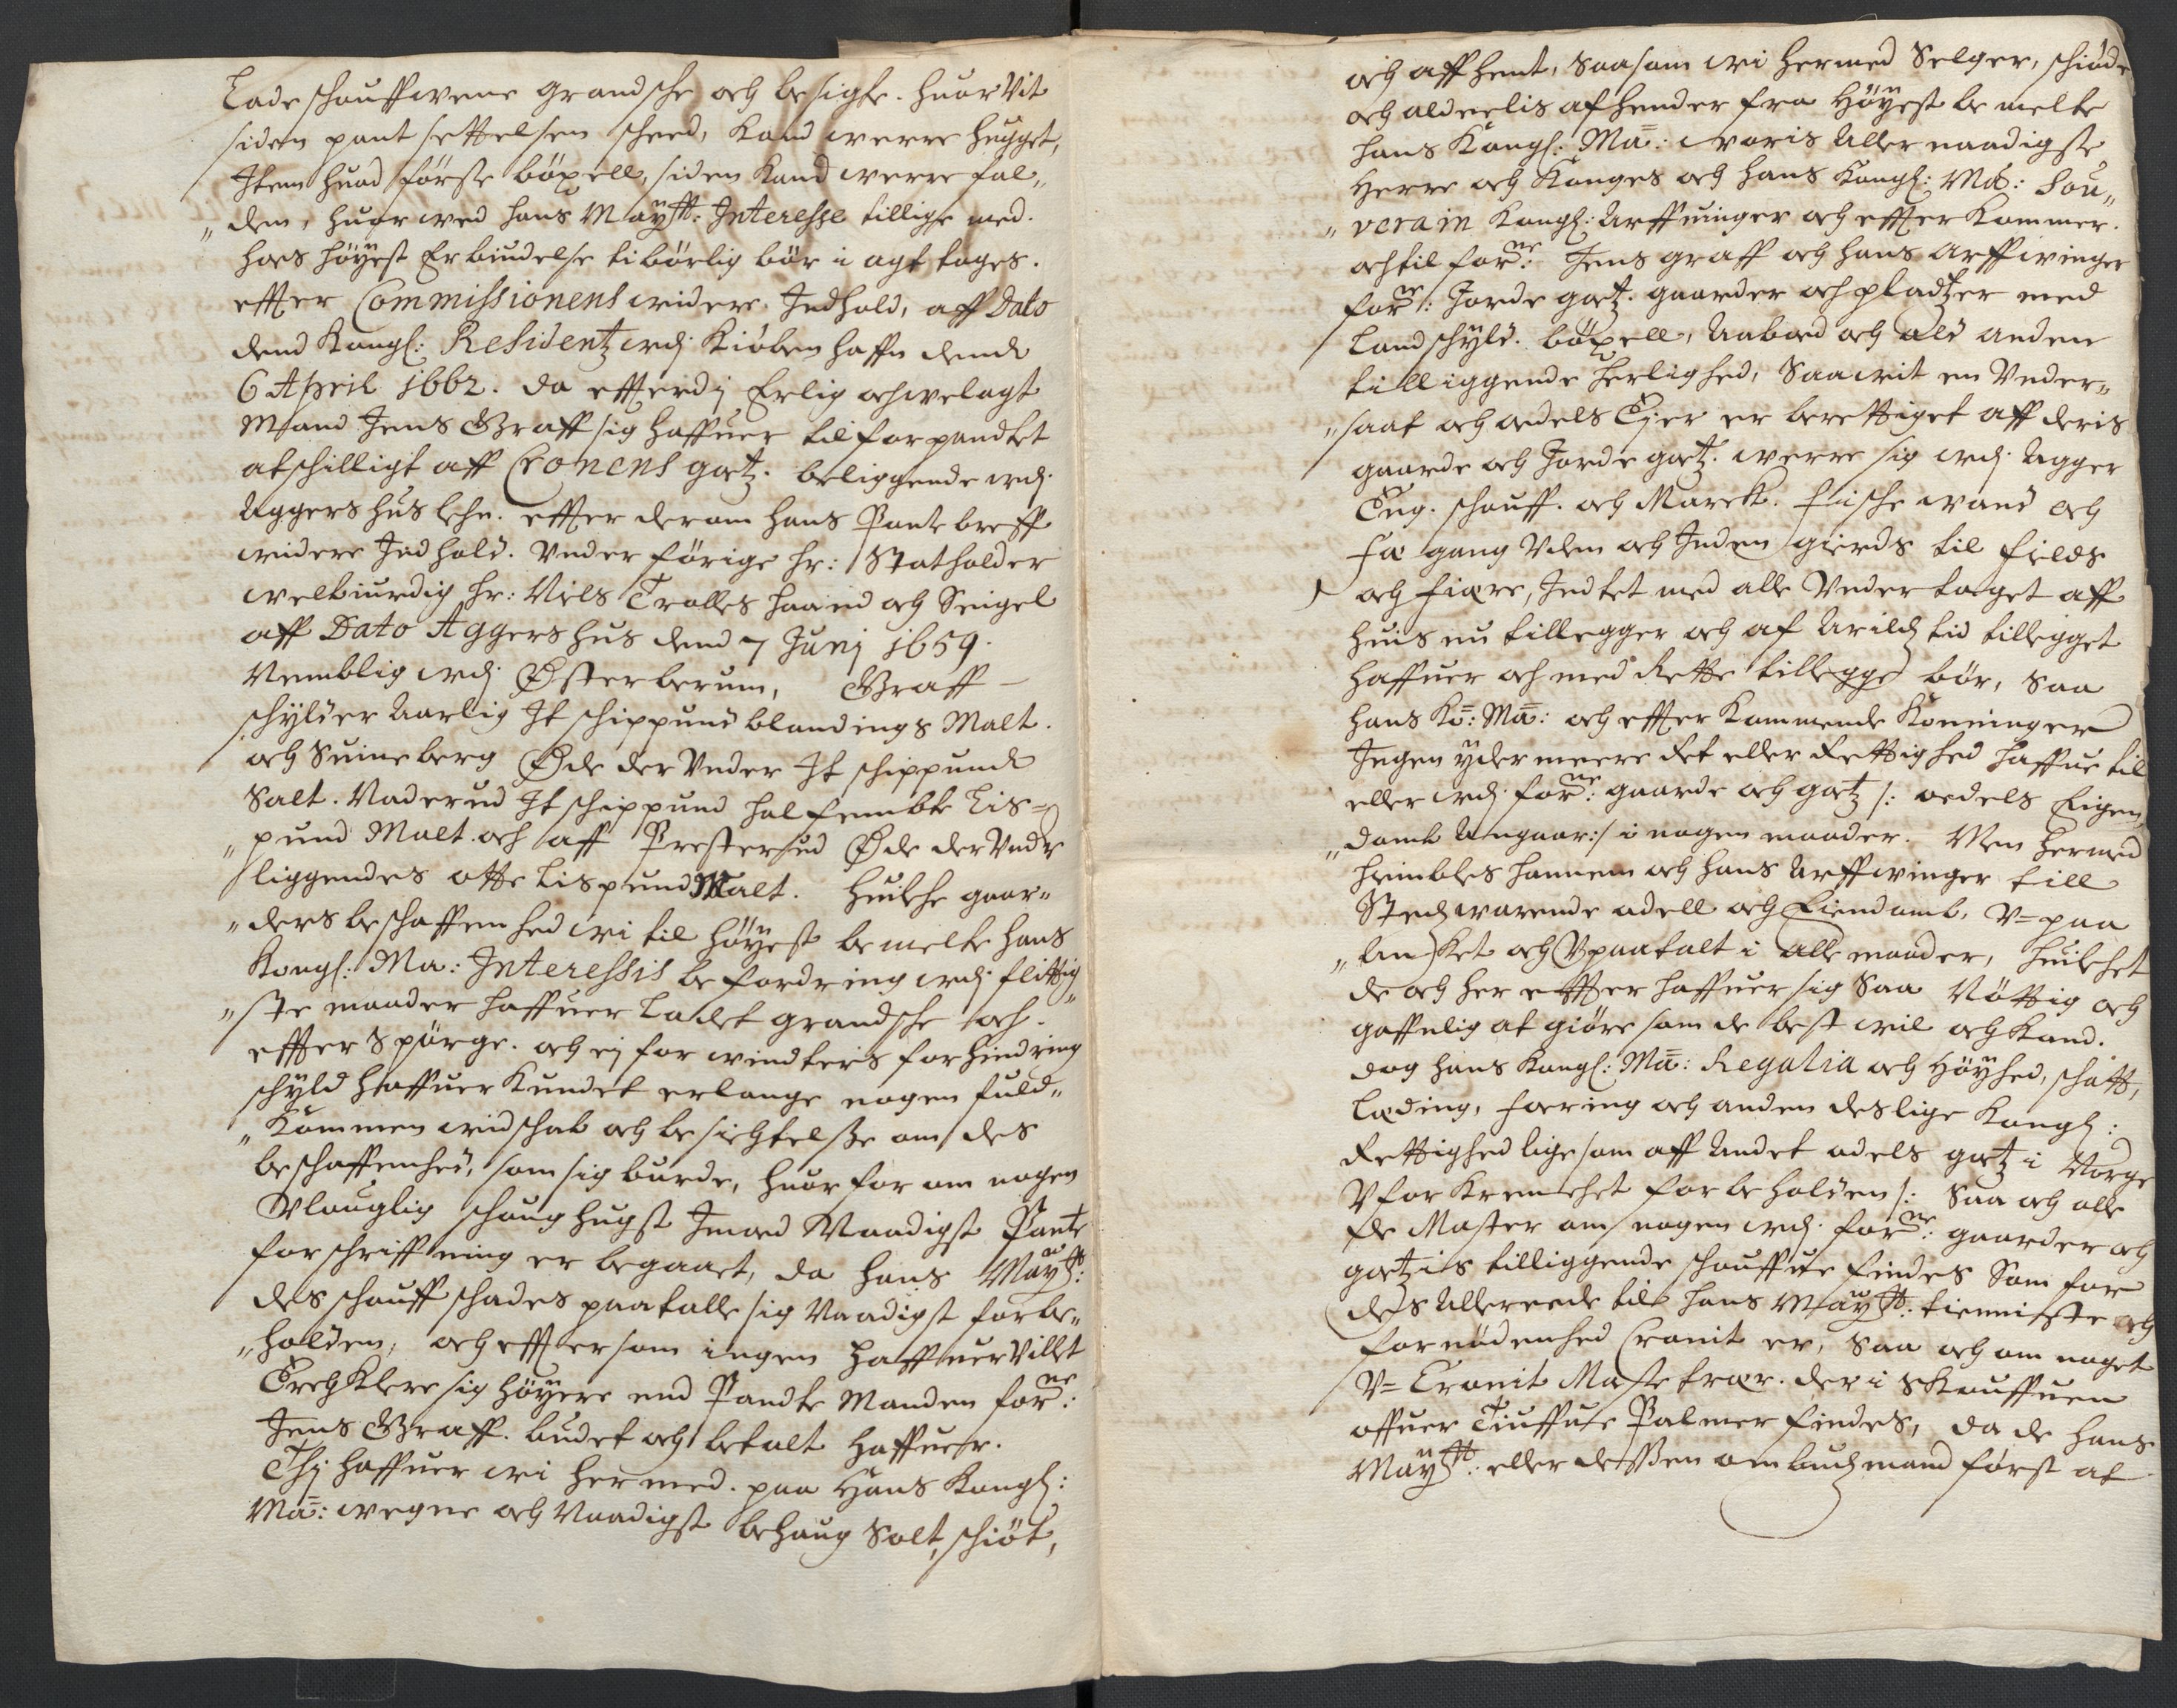 Lade schouffwene grandsche och besigte. huor Vit
siden pant settelsen scheed, kand were hugget,
Item huad förste böxell, siden kand were fal„
„ den, huor ved hans Maytt: Interesse tillige med.
hans höyest Erbiudelse tilbörlig bör i agt tages.
efter Commissionens videre Indhold, aff Dato
dend Kongl: Residentz udj Kiöben haffn dend
6 April 1662. da efterdj Erlig och welagt
Mand Jens Graff sig haffuer tilforpandtet
atschilligt aff Cronens gotz. beliggende udj.
Aggershus lehn. efter derom hans Pante breff
widere Indhold. Vnder förige hr: Statholder
welbiurdig hr: Niels Trolles haand och Seigel
aff Dato Aggershus dend 7 Junj 1659.
Nemblig udj Østerberum, Graff
schylder Aarlig It schippund blandings Malt.
och Suineberg Øde der Vnder It schippund
Salt. Naderud It schippund half fembte Lis=
„ pund Malt och aff Presterud Øde der Vnder
liggendes otte Lispund Malt. Huilche gaar„
„ ders beschaffenhed wi til höyest bemelte hans
Kongl: Ma: Interessis befordring udj flittig„
„ ste maader haffuer Ladet grandsche och.
efter Spörge. och ej for windteris forhindring
schyld haffuer kundet erlange nogen fuld„
„ kommen widschab och besichtelsse om des
beschaffenhed, som sig burde, huor for om nogen
Vlouglig schoug hugst Imod Naadigst Pante
forschriffning er begaaet, da hans Maytt:
des schouff schades paatalle sig Naadigst forbe„
„ holden, och eftersom ingen haffuer Villet
Erchklere sig höyere end Pandte Manden forne:
Jens Graff. budet och betalt haffuer.
Thj haffuer wi hermed. paa Hans Kongl:
Ma: wegne och Naadigst behaug Solt, schiöt,
och aff hent, saasom wi hermed Selger, schiöde
och aldeelis afhender fra Höyest bemelte
hans Kongl: Ma: woris Aller naadigste
Herre och Konges och hans Kongl: Ma: Sou„
„ verain Kongl: Arffuinger och effter kommer.
och til forne: Jens graff och hans Arffwinger
forne: Jorde gotz. gaarder och pladtzer med
Landschyld. böxell, Aabod och ald anden
tilliggende herlighed, Saawit en Vnder„
„ saat och odels Ejer er berettiget aff deris
gaarde och Jorde gotz. werre sig udj. Agger
Eng. schouff. och Marck. fische wand och
Fæ gang Vden och Inden gierds til fields
och fiære, Indtet med alle Vndertaget aff
huis nu tillegger och af Arilds tid tillegget
haffuer och med Rette tillegge bör, saa
hans Ko: Ma: och effter kommende Konninger
Ingen ydermeere Ret eller Rettighed haffue til
eller udj. forne: gaarde och gotz /: odels Eigen„
„ domb Angaar:/ i nogen maader. Men hermed
heimbles hannem och hans Arffwinger till
Stedswarende odell och Eiendomb, V=paa
„ ancket och Vpaatalt i alle maader, huilchet
de och her effter haffuer sig Saa Nöttig och
gaffnlig at giöre som de best wil och kand.
dog hans Kongl: Ma: Regalia och Höyhed, schatt,
Leding, foering och anden deslige Kongl:
Rettighed lige som aff Andet odels gotz i Norge
Vforkrenchet forbeholden /: Saa och alle
de Master om nogen udj. forne: gaarder och
gotzis tilliggende schouffue findes Som for
des Allereede til hans Maytt: tienniste och
fornödenhed Cronit er, saa och om noget
V=Cronit Maste trær. der i Skouffuen
offuer Tiuffue Palmer findes, da de hans
Maytt: eller dessen ombudsmand först at